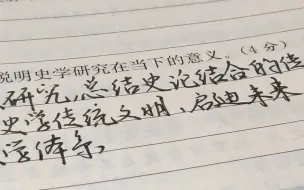 说明史学研究在当下的意义。(4分)
研究总结史论结合的传
史学传统文明,启迪未来
学体系,